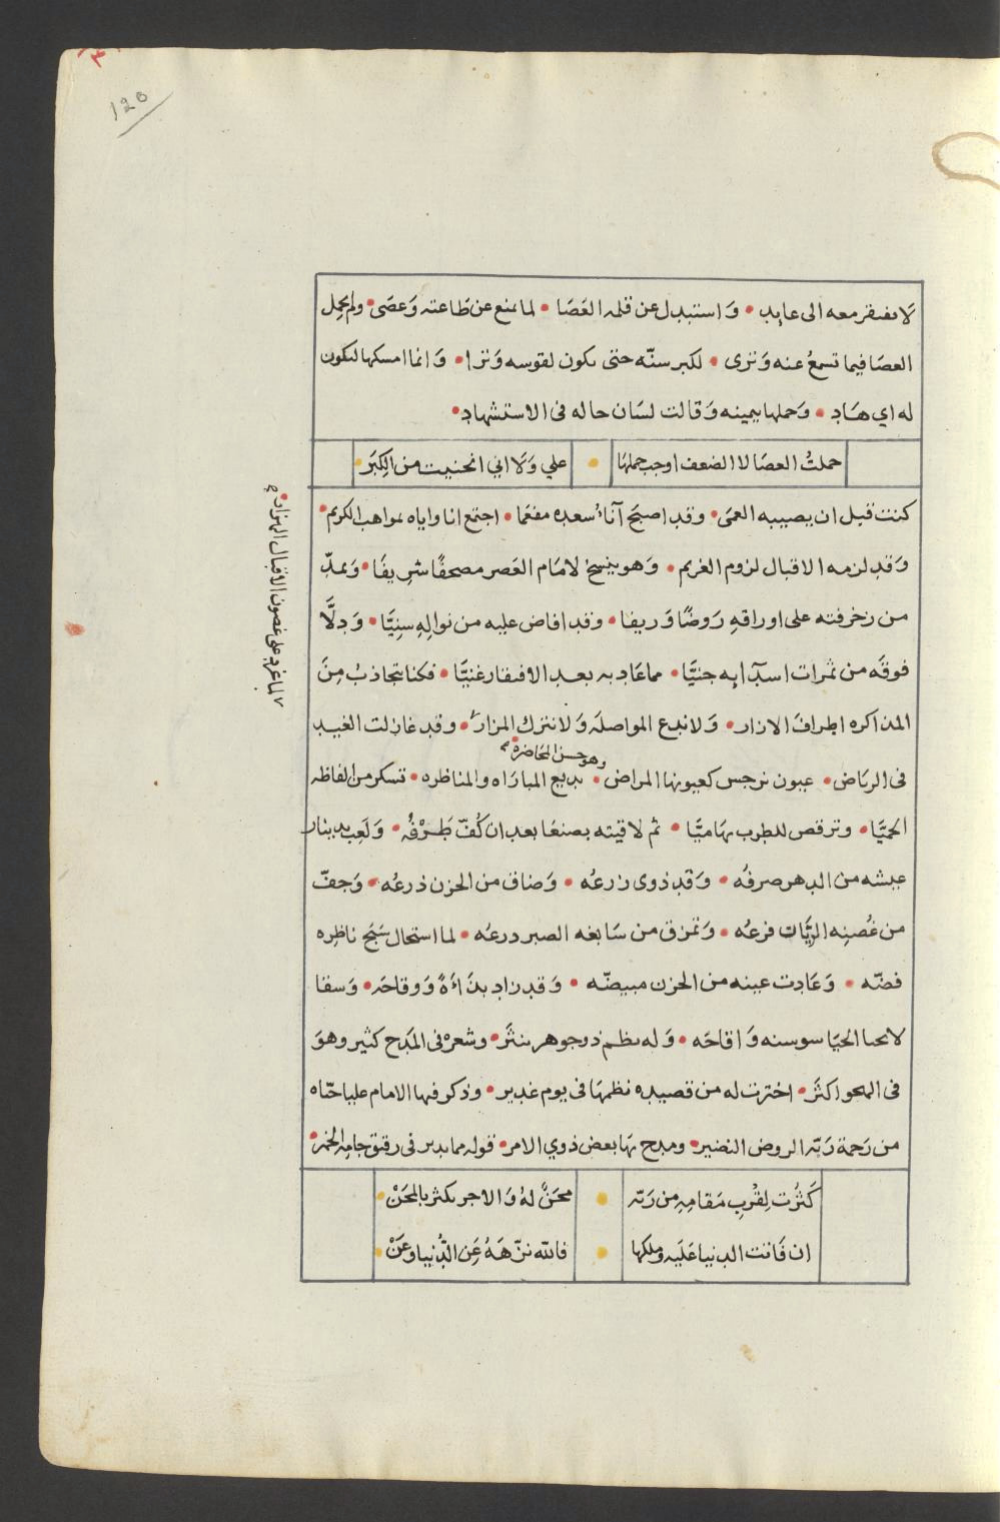 120
لا يفتقر معه الى عايد • وَاستبدل عن قلمه العَصَا • لما منع عن طَاعته وَعصَى • ولم يحمل
العصَا فيما تسمعُ عنه وَترى • لكبر سنّه حتى يكون لقوسه وَترا • وَانما امسكها لتكون
له اي هَادٍ • وَحملها بيمينه وَقالت لسَان حاله في الاستشهاد •
حملتُ العصَا لا الضعف اوجب حملهَا • علي وَلَا اني انحنيت من الكِبَر •
كنت قبل ان يصيبه العمَى • وقد اصبَح آنَاءُ سعده مفعَما • اجتمع انا واياه بمواهب الكريم •
وَقد لزمه الاقبال لزوم الغريم • وَهو ينسخ لامَام العَصر مصحفًا شريفَا • وَيمدّ
من زخرفته على اوراقهِ رَوضًا وَريفا • وقد افاض عليه من نوالهِ سنِيَّا • وَدلَّا
فوقَه من ثمرات اسدَآيِه جنيَّا • مما عَاد به بعد الافتقار غنيَّا • فكنا نتجاذبُ مِنَ
المذاكره اطرافَ الازار • وَلا ندع المواصلَه وَلا نترك المزارَ • وقد غازلت الغيد
وهو حسن المحَاضره
في الريَاض • عيون نرجس كعيونها المراض • بديع المبارَاه والمناظره • تسكر من الفاظه
الحميَّا • وترقص للطرب بهَا ميَّا • ثم لاقيته بصنعَا بعد ان كُفّ طَرْفُه • وَلَعِب بدينار
عيشه من الدهر صرفُه • وَقد ذوى زرعُه • وَضاق من الحزن ذرعُه • وَجفّ
من غُصنِه الريَّان فرعُه • وَتمزق من سَابغه الصبر درعُه • لما استحال سَبَج ناظِره
فضّه • وَعَادت عينه من الحزن مبيضّه • وَقد زاد بذَاءَةً وَوقاحَه • وَسقا
لا بحيا الحيَا سوسنه وَاقاحَه • وَله نظم ذو جوهر ينثَر • وشعره في المَدح كثير وهوَ
في الهجو اكثَر • اخترت له من قصيده نظمهَا في يوم غدير • وذكر فيها الامام عليا حيّاه
من رَحمة رَبّه الروض النضير • ومدح بهَا بعض ذوي الامر • قوله مما يدير في رقته جامه الخمر •
كَثُرت لِقُربِ مَقامِهِ من رَبّه • محَنٌ لهُ وَالاجر يكثر بالمحَنْ •
ان فَاتت الدنيا عَليَه وملكها • فالله نزّهَهُ عَن الدُّنيا وعَنْ •
لما غرد على غصون الاقبال الهزاد • صح